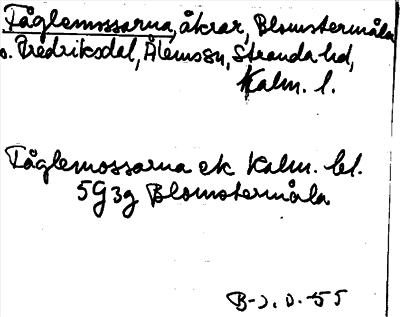 Fåglemossarna, åkrar, Blomstermåla
o. Fredriksdal, Ålems sn, Stranda hd,
Kalm. l.
Fåglemossarna ek Kalm. bl.
5G3g Blomstermåla